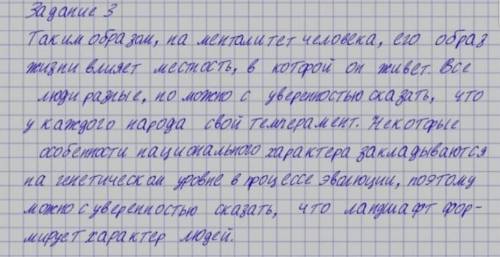 Задание 3
Таким образом, на менталитет человека, его образ
жизни влияет местность, в которой он живет. Все
люди разные, но можно с уверенностью сказать, что
у каждого народа свой темперамент. Некоторые
особенности национального характера закладываются
на генетическом уровне в процессе эволюции, поэтому
можно с уверенностью сказать, что ландшафт фор-
мирует характер людей.